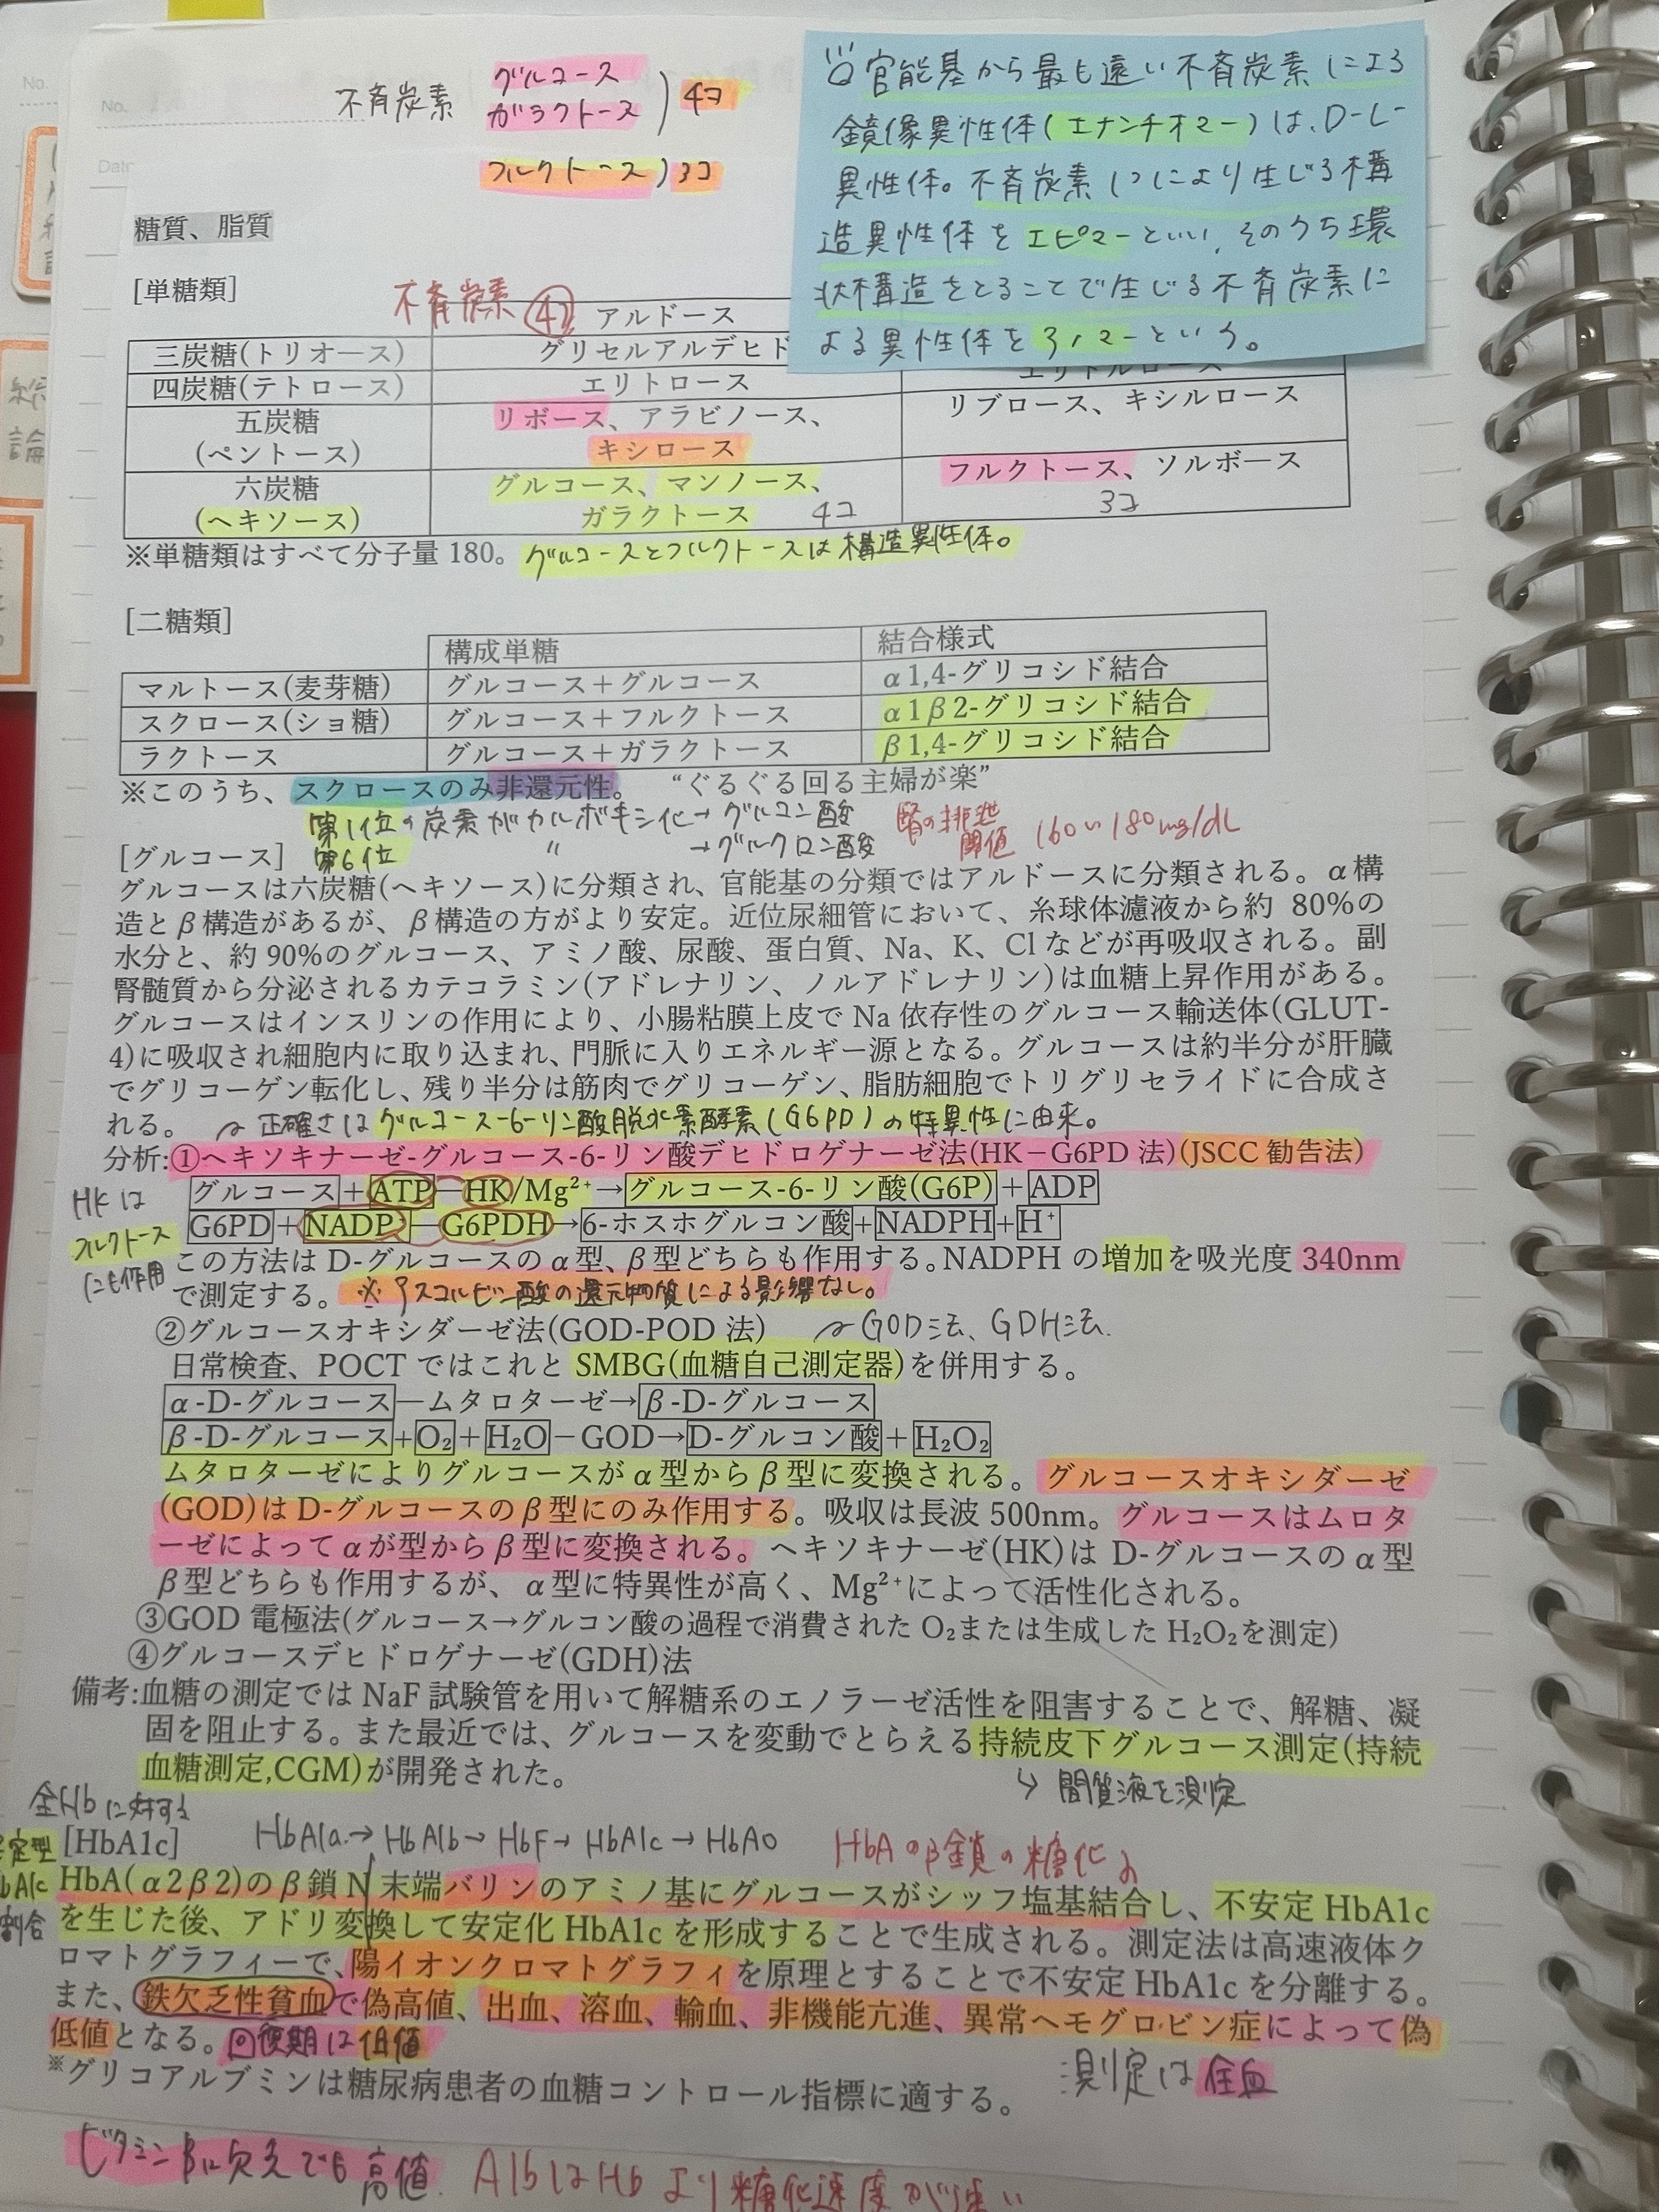 No.
不斉炭素
グルコース
ガラクトース ) 4コ
フルクトース ) 3コ
官能基から最も遠い不斉炭素による
鏡像異性体(エナンチオマー)は、D-L-
異性体。不斉炭素1つにより生じる構
造異性体をエピマーといい、そのうち環
状構造をとることで生じる不斉炭素に
よる異性体をアノマーという。
糖質、脂質
[単糖類]
不斉炭素
アルドース
三炭糖(トリオース) グリセルアルデヒド
四炭糖(テトロース) エリトロース エリトルロース
五炭糖
(ペントース)
リボース、アラビノース、
キシロース
リブロース、キシルロース
六炭糖
(ヘキソース)
グルコース、マンノース、
ガラクトース 4コ
フルクトース、ソルボース
3コ
※単糖類はすべて分子量 180。グルコースとフルクトースは構造異性体。
[二糖類]
構成単糖 結合様式
マルトース(麦芽糖) グルコース+グルコース α1,4-グリコシド結合
スクロース(ショ糖) グルコース+フルクトース α1β2-グリコシド結合
ラクトース グルコース+ガラクトース β1,4-グリコシド結合
※このうち、スクロースのみ非還元性。 “ぐるぐる回る主婦が楽”
第1位の炭素がカルボキシ化→グルコン酸
第6位 〃 →グルクロン酸
腎の排泄
閾値 160~180mg/dL
[グルコース]
グルコースは六炭糖(ヘキソース)に分類され、官能基の分類ではアルドースに分類される。α構
造とβ構造があるが、β構造の方がより安定。近位尿細管において、糸球体濾液から約 80%の
水分と、約 90%のグルコース、アミノ酸、尿酸、蛋白質、Na、K、Cl などが再吸収される。副
腎髄質から分泌されるカテコラミン(アドレナリン、ノルアドレナリン)は血糖上昇作用がある。
グルコースはインスリンの作用により、小腸粘膜上皮で Na 依存性のグルコース輸送体(GLUT-
4)に吸収され細胞内に取り込まれ、門脈に入りエネルギー源となる。グルコースは約半分が肝臓
でグリコーゲン転化し、残り半分は筋肉でグリコーゲン、脂肪細胞でトリグリセライドに合成さ
れる。
正確さはグルコース-6-リン酸脱水素酵素(G6PD)の特異性に由来。
分析:①ヘキソキナーゼ-グルコース-6-リン酸デヒドロゲナーゼ法(HK-G6PD 法)(JSCC 勧告法)
グルコース+ATP―HK/Mg²⁺→グルコース-6-リン酸(G6P)+ADP
G6PD+NADP⁺―G6PDH→6-ホスホグルコン酸+NADPH+H⁺
HKは
フルクトース
にも作用
この方法は D-グルコースのα型、β型どちらも作用する。NADPH の増加を吸光度 340nm
で測定する。 ※アスコルビン酸の還元物質による影響なし。
②グルコースオキシダーゼ法(GOD-POD 法) GOD法、GDH法.
日常検査、POCT ではこれと SMBG(血糖自己測定器)を併用する。
α-D-グルコース―ムタロターゼ→β-D-グルコース
β-D-グルコース+O₂+H₂O-GOD→D-グルコン酸+H₂O₂
ムタロターゼによりグルコースがα型からβ型に変換される。グルコースオキシダーゼ
(GOD)は D-グルコースのβ型にのみ作用する。吸収は長波 500nm。グルコースはムロタ
ーゼによってαが型からβ型に変換される。ヘキソキナーゼ(HK)は D-グルコースのα型
β型どちらも作用するが、α型に特異性が高く、Mg²⁺によって活性化される。
③GOD 電極法(グルコース→グルコン酸の過程で消費された O₂または生成した H₂O₂を測定)
④グルコースデヒドロゲナーゼ(GDH)法
備考:血糖の測定では NaF 試験管を用いて解糖系のエノラーゼ活性を阻害することで、解糖、凝
固を阻止する。また最近では、グルコースを変動でとらえる持続皮下グルコース測定(持続
血糖測定,CGM)が開発された。
↳ 間質液を測定
全Hbに対する
定型
bA1c
割合
[HbA1c]
HbA1a→HbA1b→HbF→HbA1c→HbA0
HbAのβ鎖の糖化
HbA(α2β2)のβ鎖 N 末端バリンのアミノ基にグルコースがシッフ塩基結合し、不安定 HbA1c
を生じた後、アドリ変換して安定化 HbA1c を形成することで生成される。測定法は高速液体ク
ロマトグラフィーで、陽イオンクロマトグラフィを原理とすることで不安定 HbA1c を分離する。
また、鉄欠乏性貧血で偽高値、出血、溶血、輸血、非機能亢進、異常ヘモグロビン症によって偽
低値となる。回復期は低値
※グリコアルブミンは糖尿病患者の血糖コントロール指標に適する。
測定は全血
ビタミンB12欠乏でも高値.
AlbはHbより糖化速度が速い